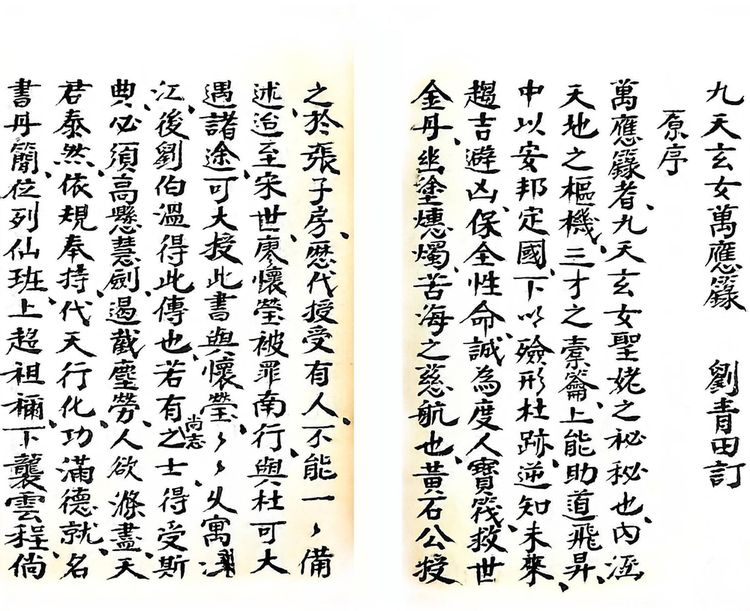 九天玄女萬應籙　劉青田訂
原序
萬應籙者、九天玄女聖姥之祕秘也、內涵
天地之樞機、三才之橐籥、上能助道飛昇、
中以安邦定國、下以殮形杜跡、逆知未來、
趨吉避凶、保全性命、誠為度人寶筏、救世
金丹、幽塗燭、苦海之慈航也、黃石公授
之於張子房、歷代授受有人、不能一々備
述、迨至宋世廖懷瑩被罪南行、與杜可大
遇諸途、可大授此書與懷瑩、々々久寓
江、後劉伯溫得此傳也、若有尚志之士得受斯
典、必須高懸慧劍、遏截塵勞、人欲滌盡、天
君泰然、依規奉持、代天行化、功滿德就、名
書丹簡、位列仙班、上超祖禰、下襲雲程、倘